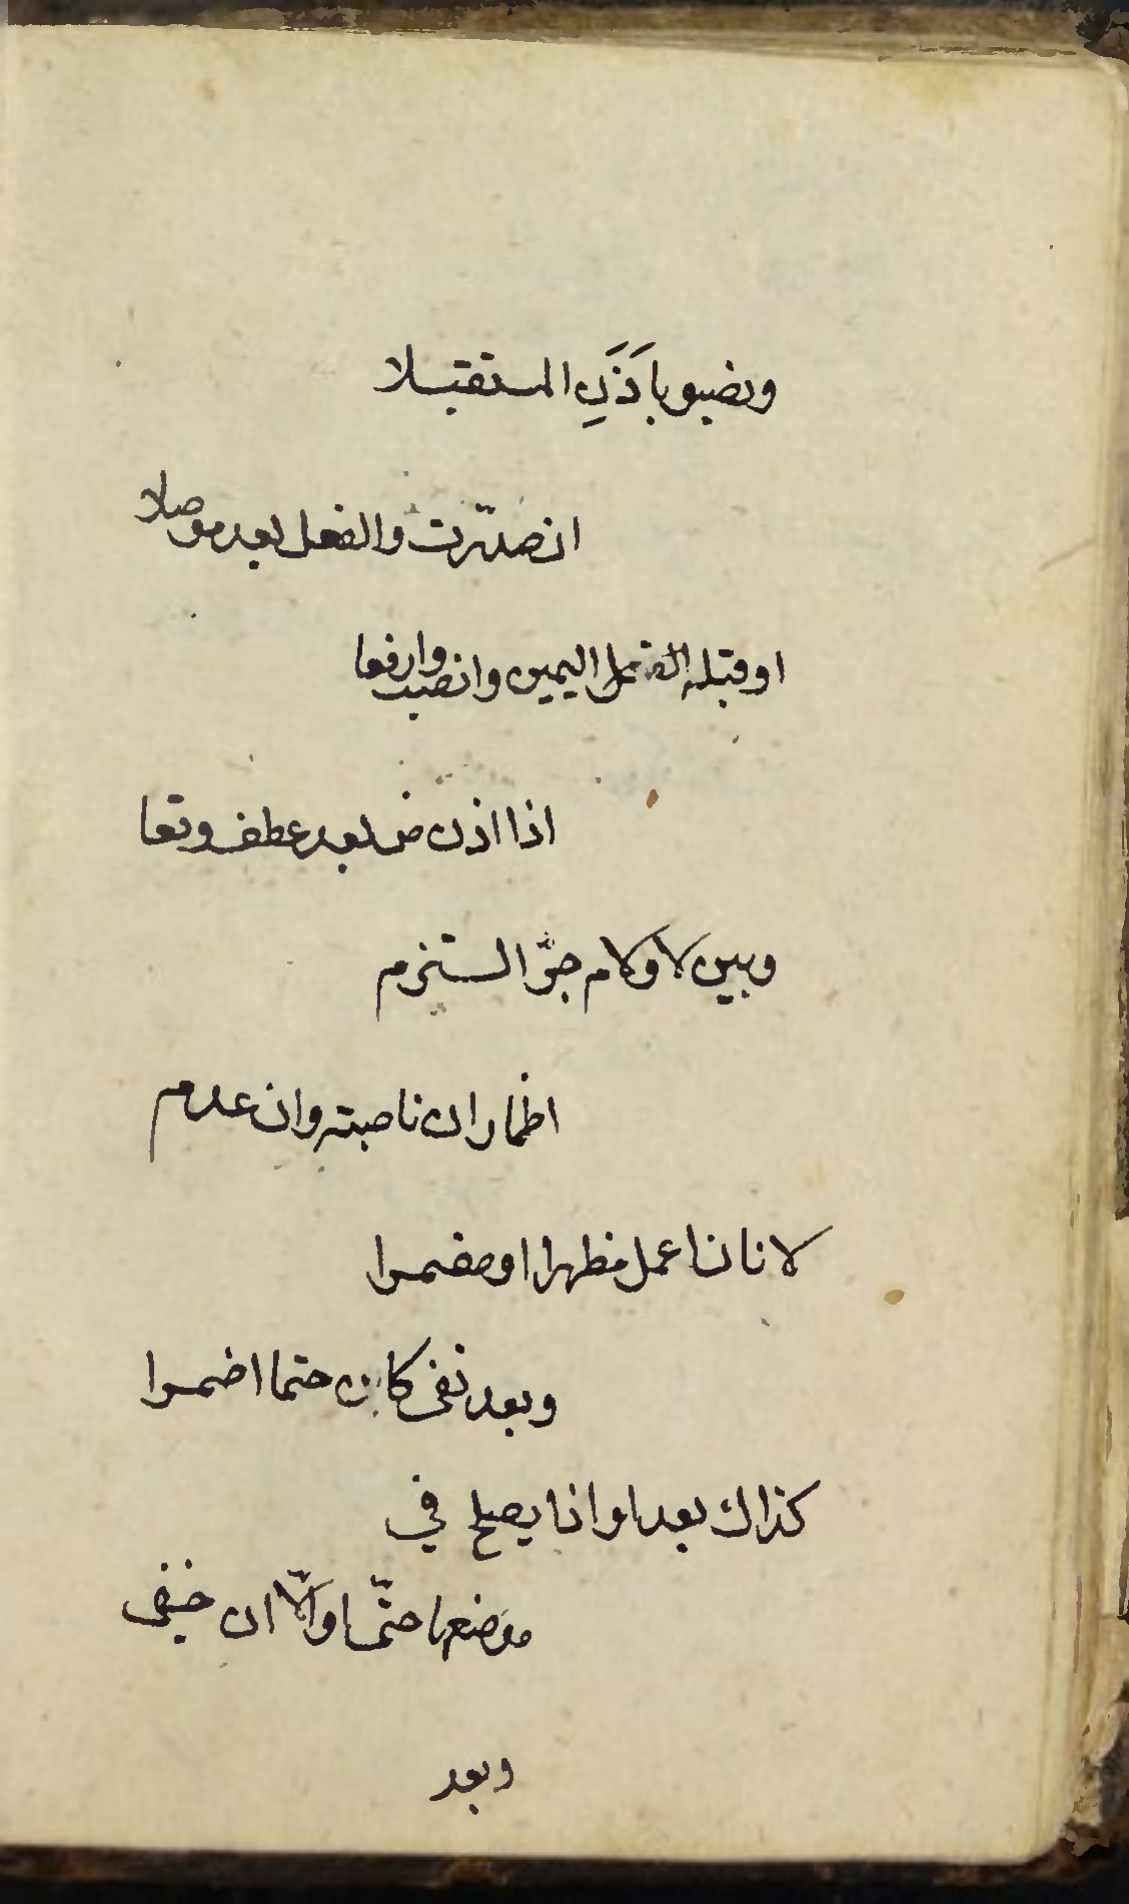 ونصبوا باذن المستقبلا
ان صدّرت والفعل بعد موصلا
او قبله اليمين وانصب وارفعا
اذا اذن من بعد عطف وقعا
وبين لا ولام جرّ التزم
اظهار ان ناصبة وان عدم
لا فان اعمل مظهرا او مضمرا
وبعد نفى كان حتما اضمرا
كذاك بعد او اذا يصلح في
موضعها حتّى او الّا ان خفى
وبعد